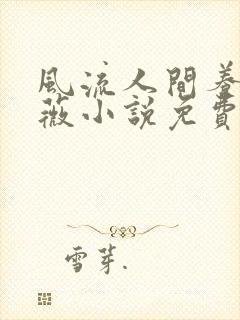 風流人間養
薇小說免費
雪芽.